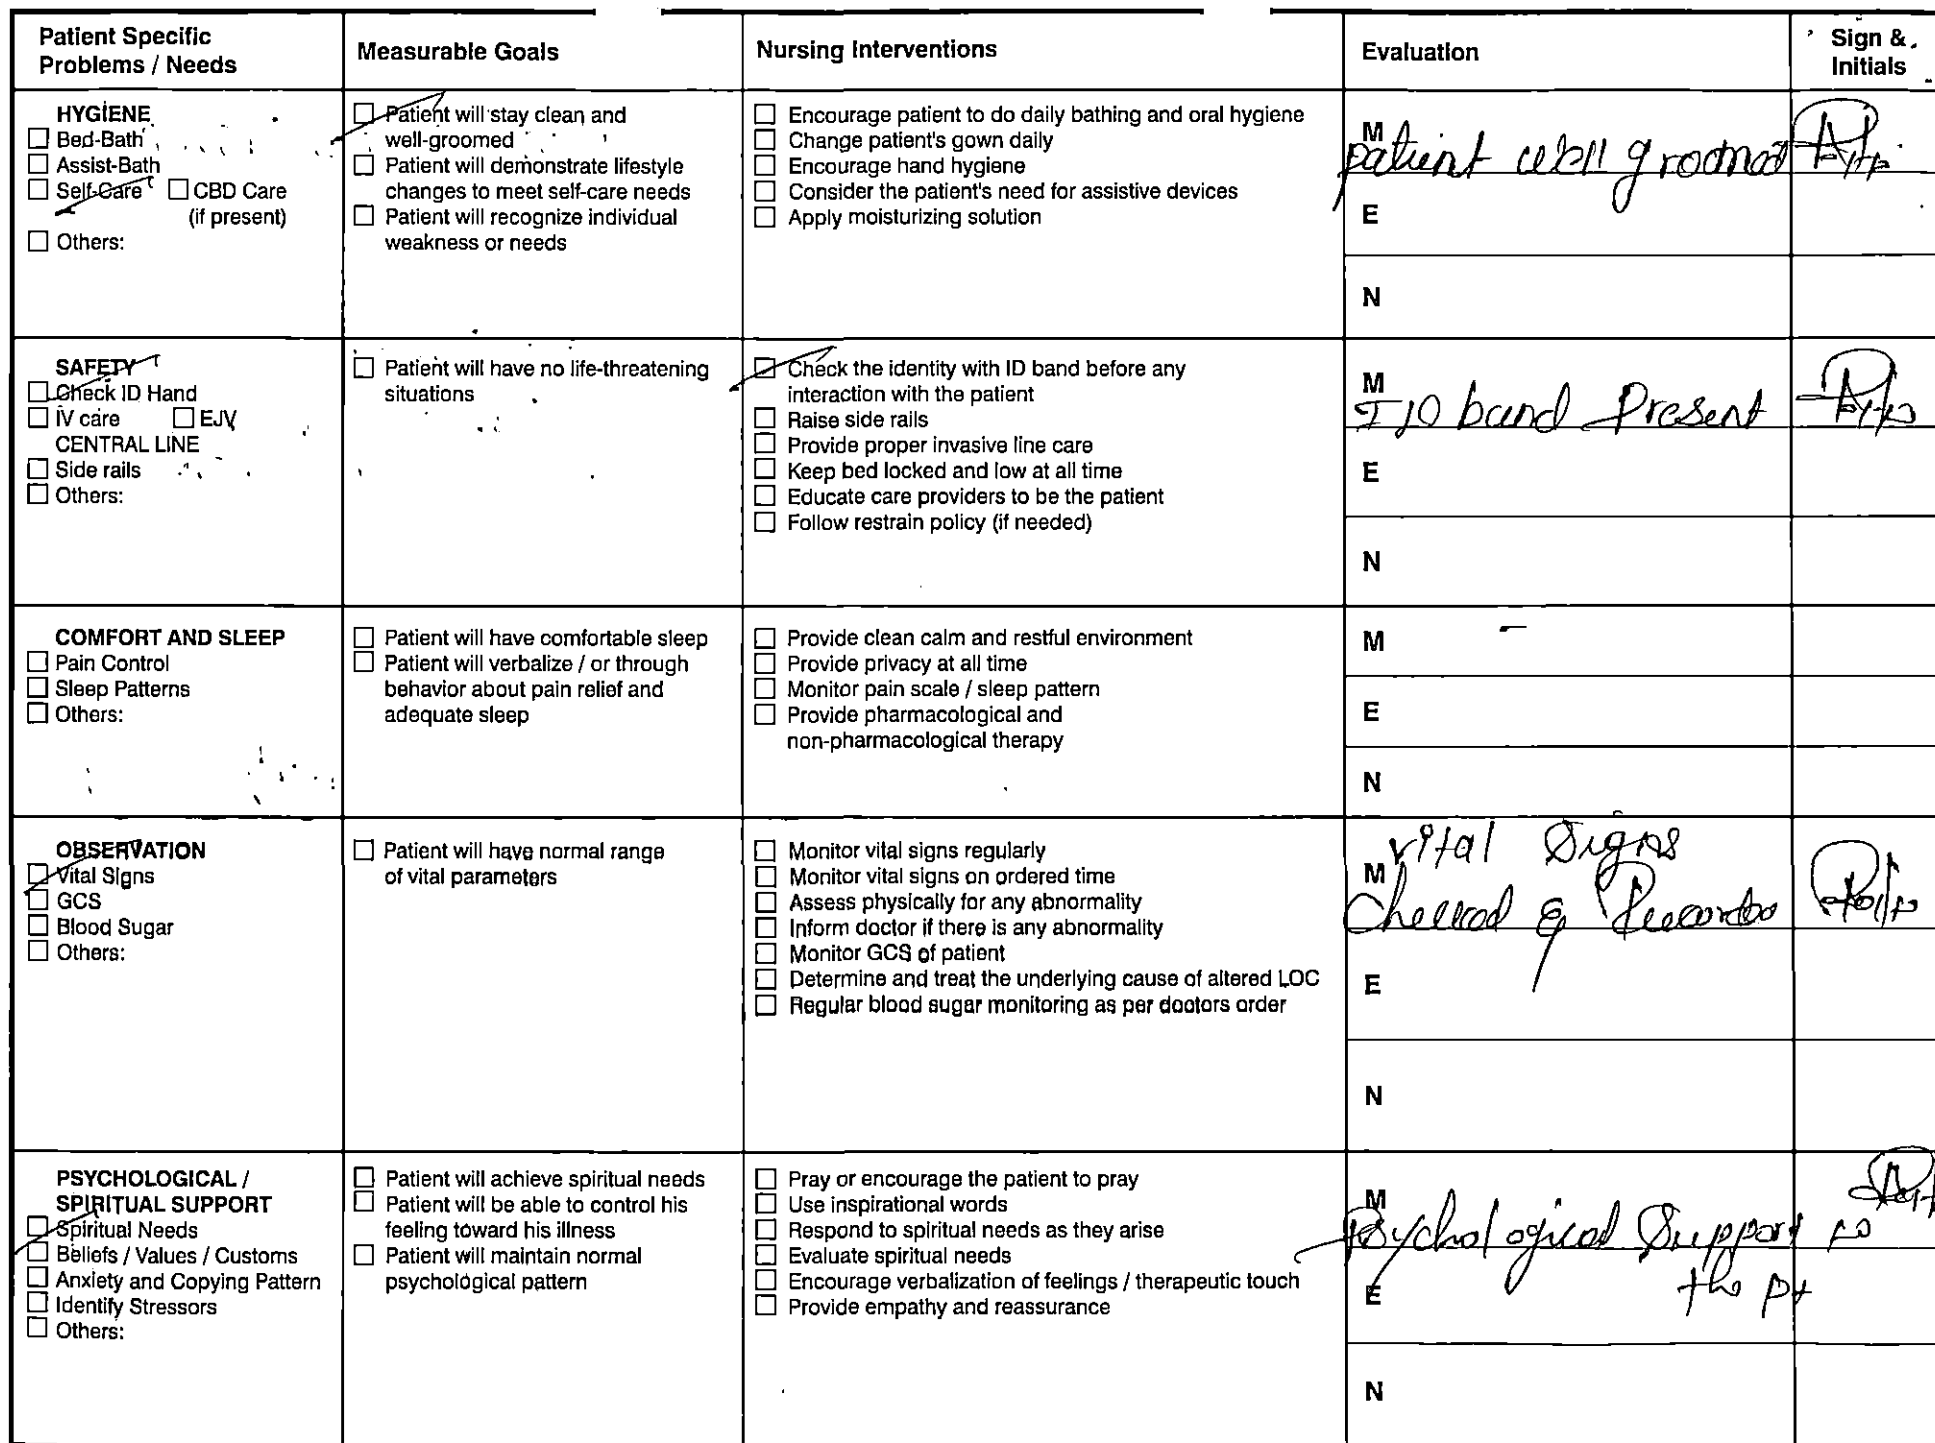 Patient Specific
Problems / Needs
Measurable Goals
Nursing Interventions
Evaluation
Sign &
Initials
HYGIENE
☐ Bed-Bath
☐ Assist-Bath
☐ Self-Care ☐ CBD Care
(if present)
☐ Others:
☐ Patient will stay clean and
well-groomed
☐ Patient will demonstrate lifestyle
changes to meet self-care needs
☐ Patient will recognize individual
weakness or needs
☐ Encourage patient to do daily bathing and oral hygiene
☐ Change patient's gown daily
☐ Encourage hand hygiene
☐ Consider the patient's need for assistive devices
☐ Apply moisturizing solution
M
patient well groomed
E
N
SAFETY
☐ Check ID Hand
☐ IV care ☐ EJV
CENTRAL LINE
☐ Side rails
☐ Others:
☐ Patient will have no life-threatening
situations
☐ Check the identity with ID band before any
interaction with the patient
☐ Raise side rails
☐ Provide proper invasive line care
☐ Keep bed locked and low at all time
☐ Educate care providers to be the patient
☐ Follow restrain policy (if needed)
M
I/D band Present
E
N
COMFORT AND SLEEP
☐ Pain Control
☐ Sleep Patterns
☐ Others:
☐ Patient will have comfortable sleep
☐ Patient will verbalize / or through
behavior about pain relief and
adequate sleep
☐ Provide clean calm and restful environment
☐ Provide privacy at all time
☐ Monitor pain scale / sleep pattern
☐ Provide pharmacological and
non-pharmacological therapy
M –
E
N
OBSERVATION
☐ Vital Signs
☐ GCS
☐ Blood Sugar
☐ Others:
☐ Patient will have normal range
of vital parameters
☐ Monitor vital signs regularly
☐ Monitor vital signs on ordered time
☐ Assess physically for any abnormality
☐ Inform doctor if there is any abnormality
☐ Monitor GCS of patient
☐ Determine and treat the underlying cause of altered LOC
☐ Regular blood sugar monitoring as per doctors order
vital Signs
M
Checked &
E
N
PSYCHOLOGICAL /
SPIRITUAL SUPPORT
☐ Spiritual Needs
☐ Beliefs / Values / Customs
☐ Anxiety and Copying Pattern
☐ Identify Stressors
☐ Others:
☐ Patient will achieve spiritual needs
☐ Patient will be able to control his
feeling toward his illness
☐ Patient will maintain normal
psychological pattern
☐ Pray or encourage the patient to pray
☐ Use inspirational words
☐ Respond to spiritual needs as they arise
☐ Evaluate spiritual needs
☐ Encourage verbalization of feelings / therapeutic touch
☐ Provide empathy and reassurance
M
Psychological Support to
the pt
E
N